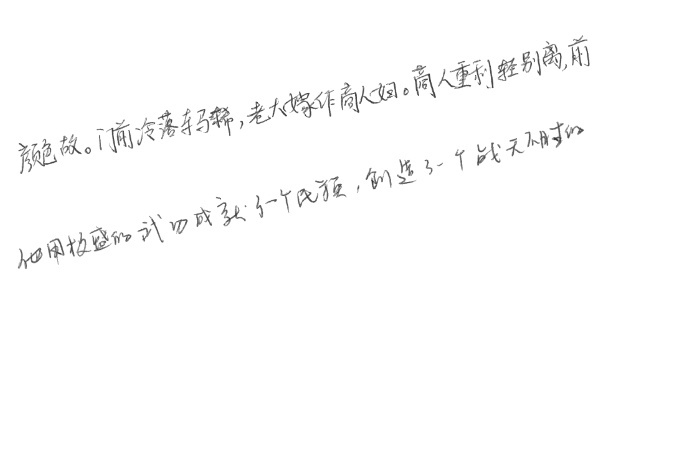 颜色故。门前冷落车马稀，老大嫁作商人妇。商人重利轻别离，前
他用极盛的武功成就了一个民族，创造了一个战无不胜的